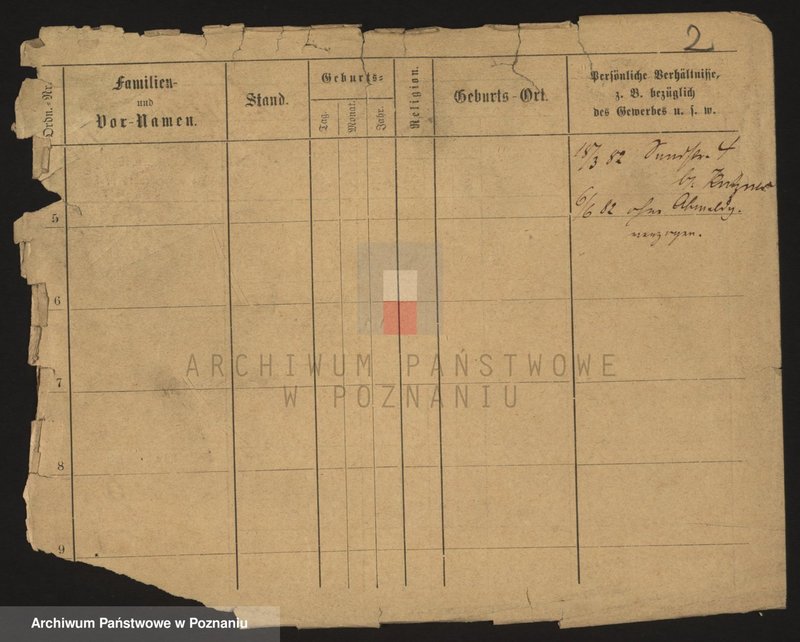 2
Ordn.-Nr.
Familien-
und
Vor-Namen.
Stand.
Geburts-
Tag.
Monat.
Jahr.
Religion.
Geburts-Ort.
Persönliche Verhältnisse,
z. B. bezüglich
des Gewerbes u. s. w.
18/3 82 Sandstr. 4
b.
6/6 82 ohne Abmeldg.
verzogen.
5
6
7
8
9
ARCHIWUM PAŃSTWOWE
W POZNANIU
Archiwum Państwowe w Poznaniu